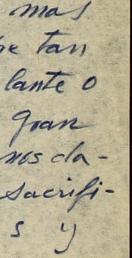 mas
e tan
lante o
gran
nos da-
sacrifi-
s y